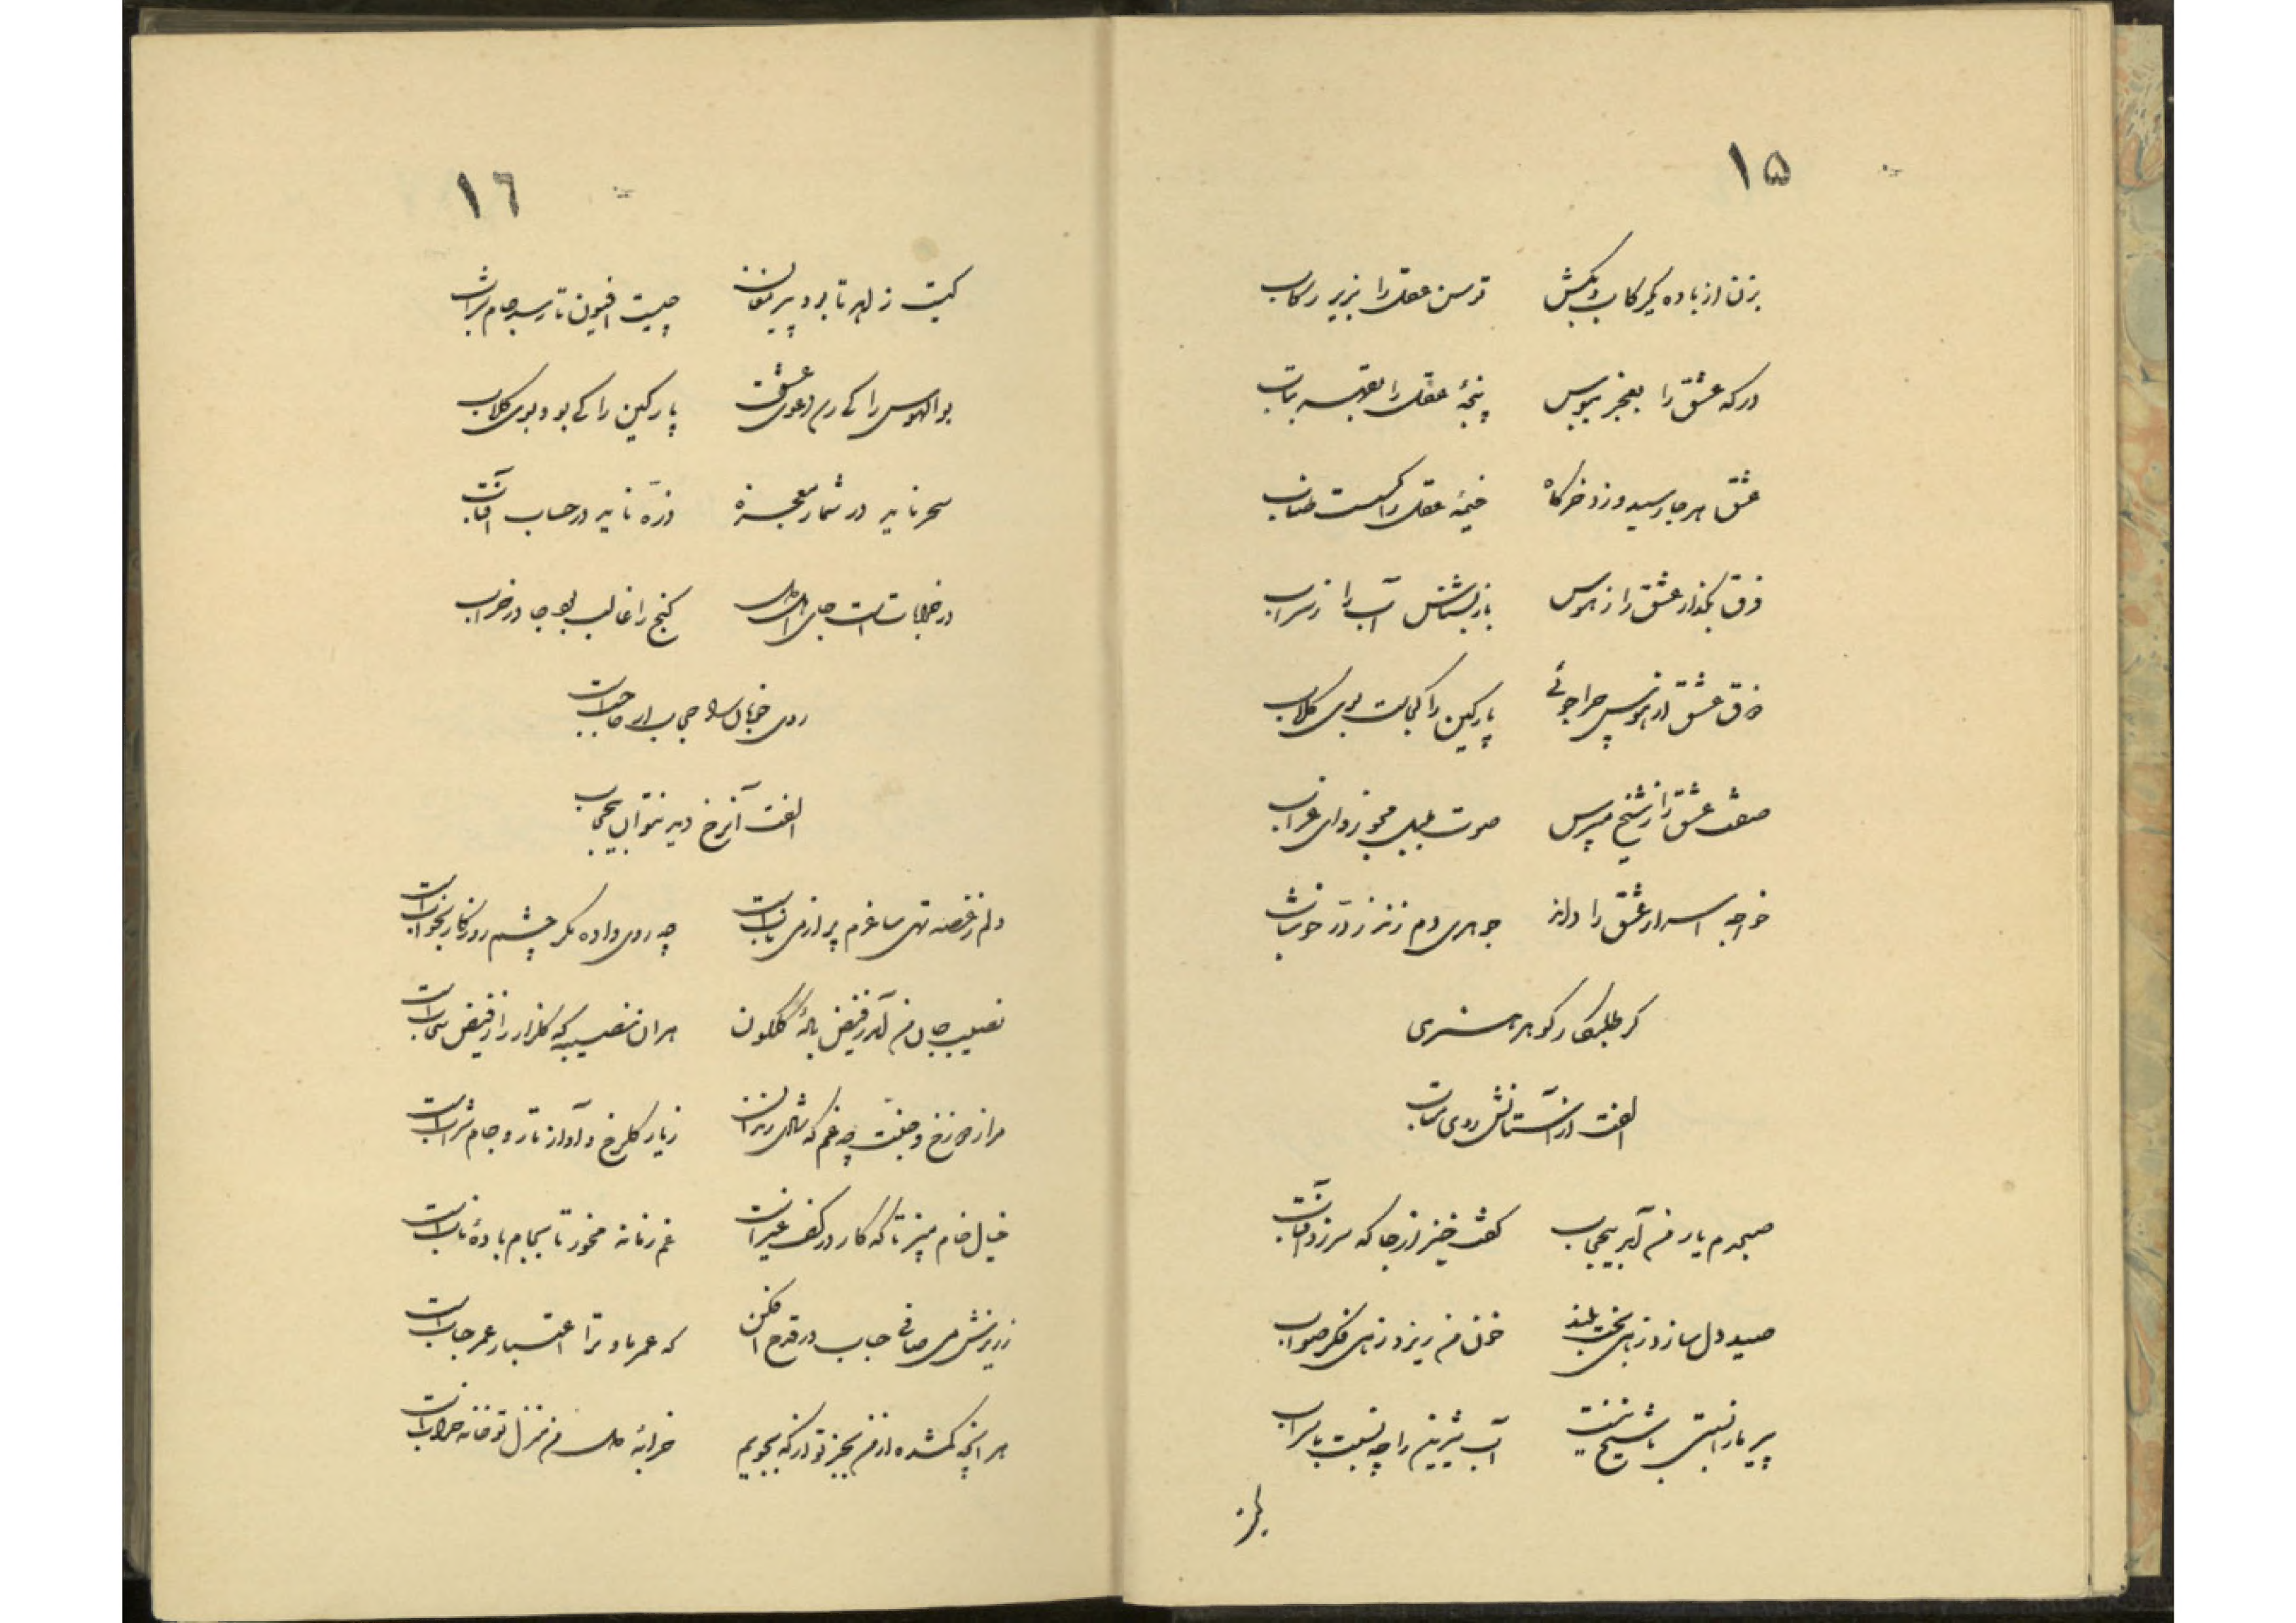 ۱۵
بزن از باده یکرکاب و بکش توسن عقل را بزیر رکاب
درکه عشق را بعجز ببوس پنجهٔ عقل را بقهر بتاب
عشق هر جا رسید و زد خرگاه خیمهٔ عقل را گسست طناب
فرق بگذار عشق را ز هوس باز بشناس آب را ز سراب
فرق عشق از هوس چرا جوئی پارکین را کجاست بوی گلاب
صفت عشق را ز شیخ مپرس صوت بلبل مجو ز وای غراب
خواجه اسرار عشق را داند جوهری دم زند ز در خوشاب
گر طلبکار گوهر هنری
الفت از آستانش روی متاب
صبحدم یار من آمد بیحجاب گفت خیز از جا که سر زد آفتاب
صید دل سازد زهی بخت بلند خون من ریزد زهی فکر صواب
پیر ما را نسبتی با شیخ نیست آب شیرین را چه نسبت با سراب
۱٦
کیست زاهد تا بود پیر مغان چیست افیون تا رسد جام شراب
بوالهوس را کی رسد دعوی عشق پارکین را کی بود بوی گلاب
سحر ناید در شمار معجزه ذره ناید در حساب آفتاب
در خرابات است جای اهل دل گنج را غالب بود جا در خراب
روی خوبان را حجابی حاجب است
الفت آنرخ دید نتوان بیحجاب
دلم ز غصه تهی ساغرم پر از می ناب است چه روی داده مگر چشم روزگار بخواب است
نصیب جان من آمد ز فیض بالهٔ گلگون هر آن نصیبه که گلزار را ز فیض سحاب است
مرا ز دوزخ و جنت چه غم که شادی رندان ز یار گلرخ و آواز تار و جام شراب است
خیال خام مپز تا که کار در کف غیر است غم زمانه مخور تا بجام بادهٔ ناب است
ز ریزش می صافی حباب در قدح افکن که عمر ما و ترا اعتبار عمر حباب است
هر آنچه گمشده از من بجز تو از که بجویم خرابهٔ دل من منزل تو خانه خراب است